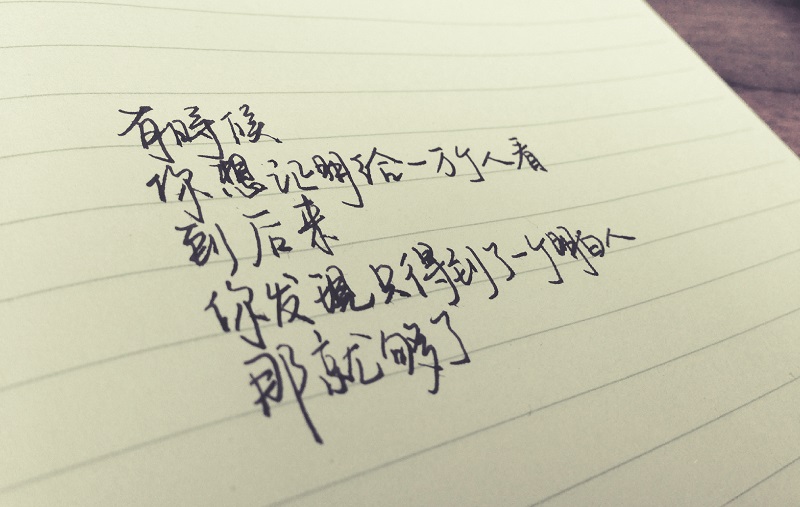 有時候
你想证明给一万个人看
到后来
你发現只得到了一个明白人
那就够了